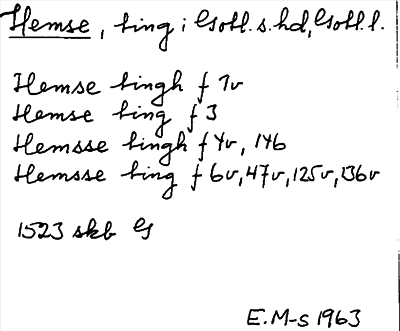 Hemse, ting i Gotl. s. hd, Gotl. l.
Hemse tingh f 1v
Hemse ting f 3
Hemsse tingh f 4v, 146
Hemsse ting f 6v, 47v, 125v, 136v
1523 skb G
E. M-s 1963